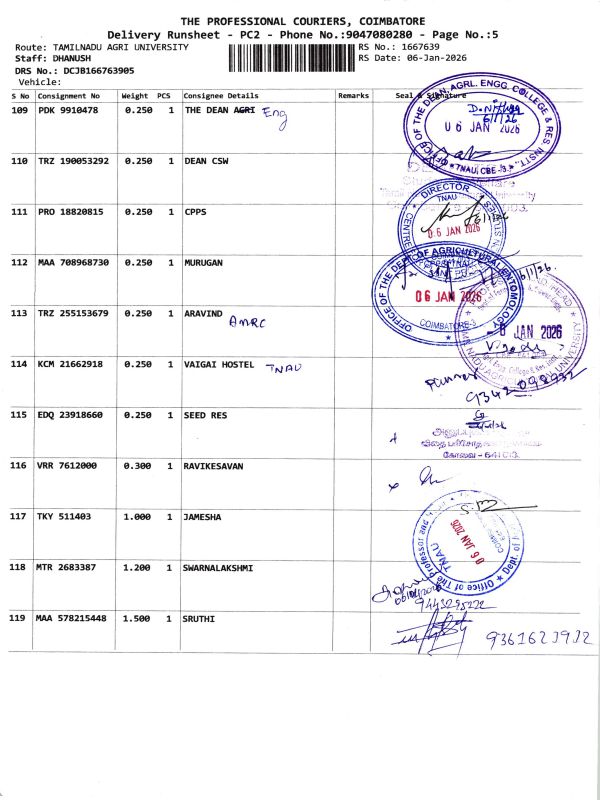 THE PROFESSIONAL COURIERS, COIMBATORE
Delivery Runsheet - PC2 - Phone No.:9047080280 - Page No.:5
Route: TAMILNADU AGRI UNIVERSITY RS No.: 1667639
Staff: DHANUSH RS Date: 06-Jan-2026
DRS No.: DCJB166763905
Vehicle:
S No Consignment No Weight PCS Consignee Details Remarks Seal & Signature
109 PDK 9910478 0.250 1 THE DEAN AGRI Eng
OFFICE OF THE DEAN, AGRL. ENGG. COLLEGE & RES. INSTT., TNAU, CBE -3.
06 JAN 2026
110 TRZ 190053292 0.250 1 DEAN CSW
111 PRO 18820815 0.250 1 CPPS
DIRECTOR
TNAU
06 JAN 2026
112 MAA 708968730 0.250 1 MURUGAN
OFFICE OF THE DEPT. OF AGRICULTURAL ENTOMOLOGY
06 JAN 2026
COIMBATORE-3
113 TRZ 255153679 0.250 1 ARAVIND
AMRC
6 JAN 2026
114 KCM 21662918 0.250 1 VAIGAI HOSTEL TNAU
9342098932
115 EDQ 23918660 0.250 1 SEED RES
116 VRR 7612000 0.300 1 RAVIKESAVAN
117 TKY 511403 1.000 1 JAMESHA
Office of The Professor and
TNAU
06 JAN 2026
118 MTR 2683387 1.200 1 SWARNALAKSHMI
9443295222
119 MAA 578215448 1.500 1 SRUTHI
9361623932